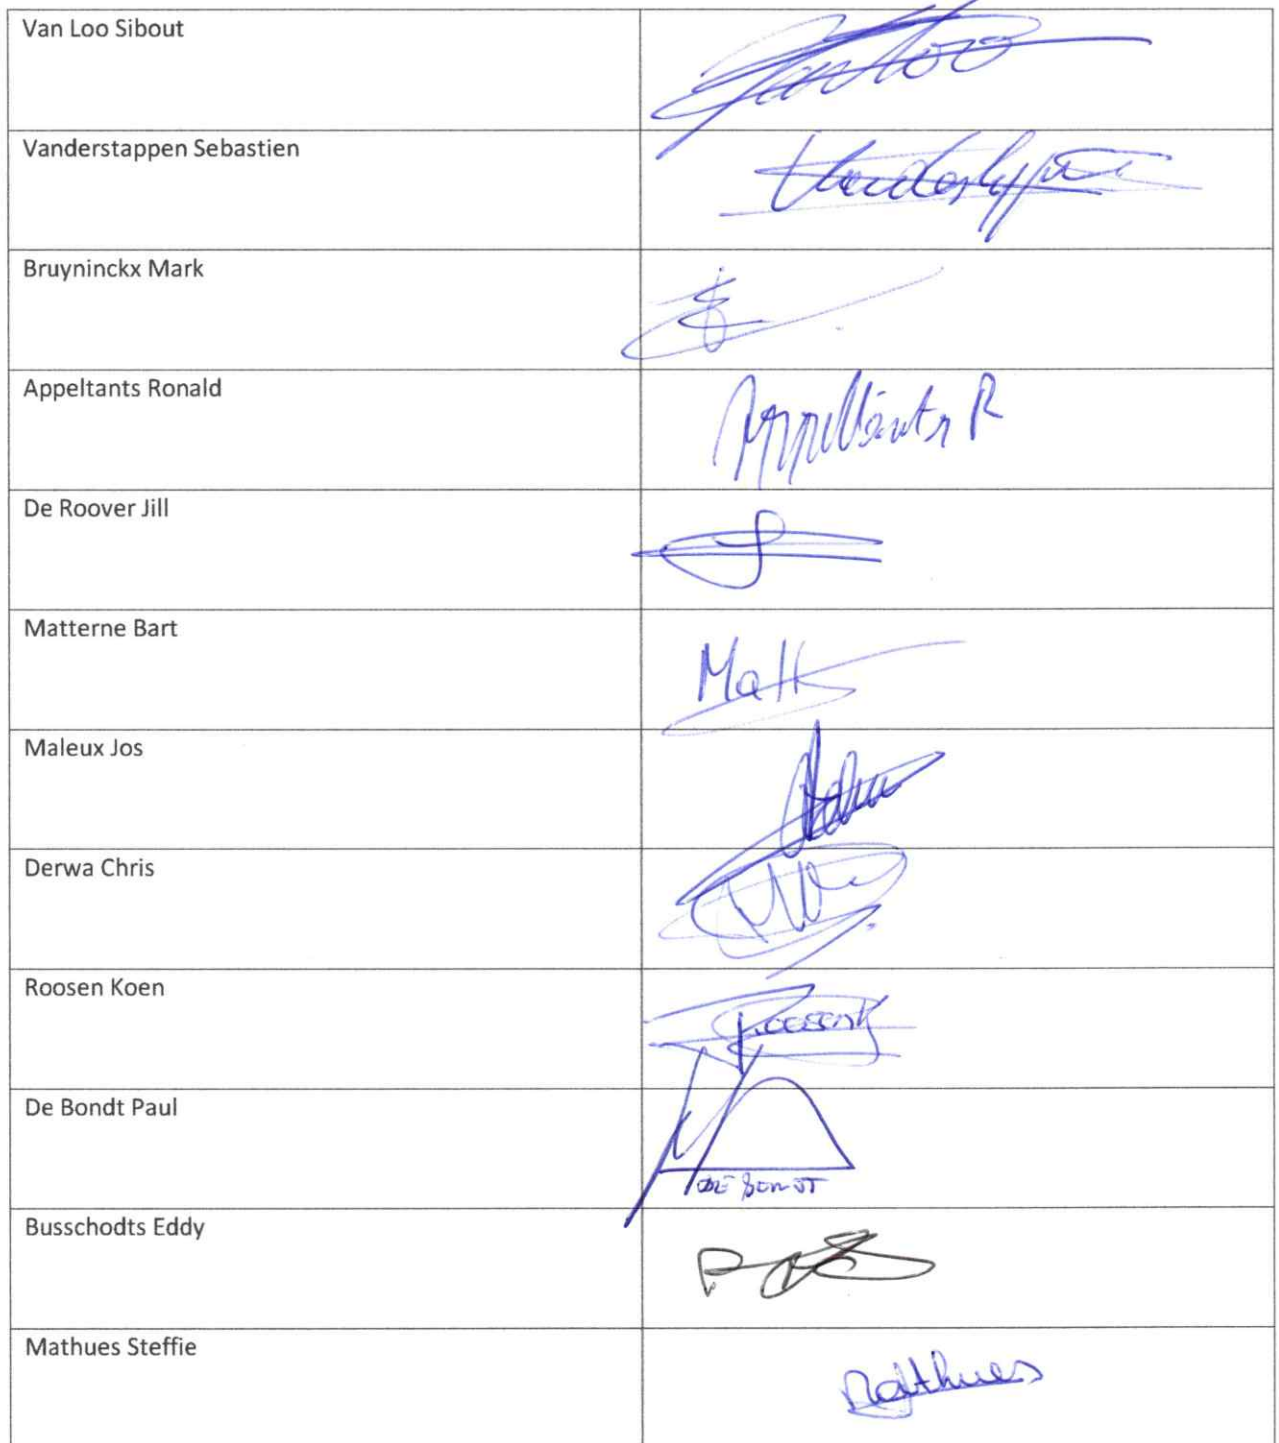 Van Loo Sibout
Vanderstappen Sebastien
Bruyninckx Mark
Appeltants Ronald
Appeltants R
De Roover Jill
Matterne Bart
Matt
Maleux Jos
Derwa Chris
Roosen Koen
De Bondt Paul
DE BONDT
Busschodts Eddy
Mathues Steffie
Mathues